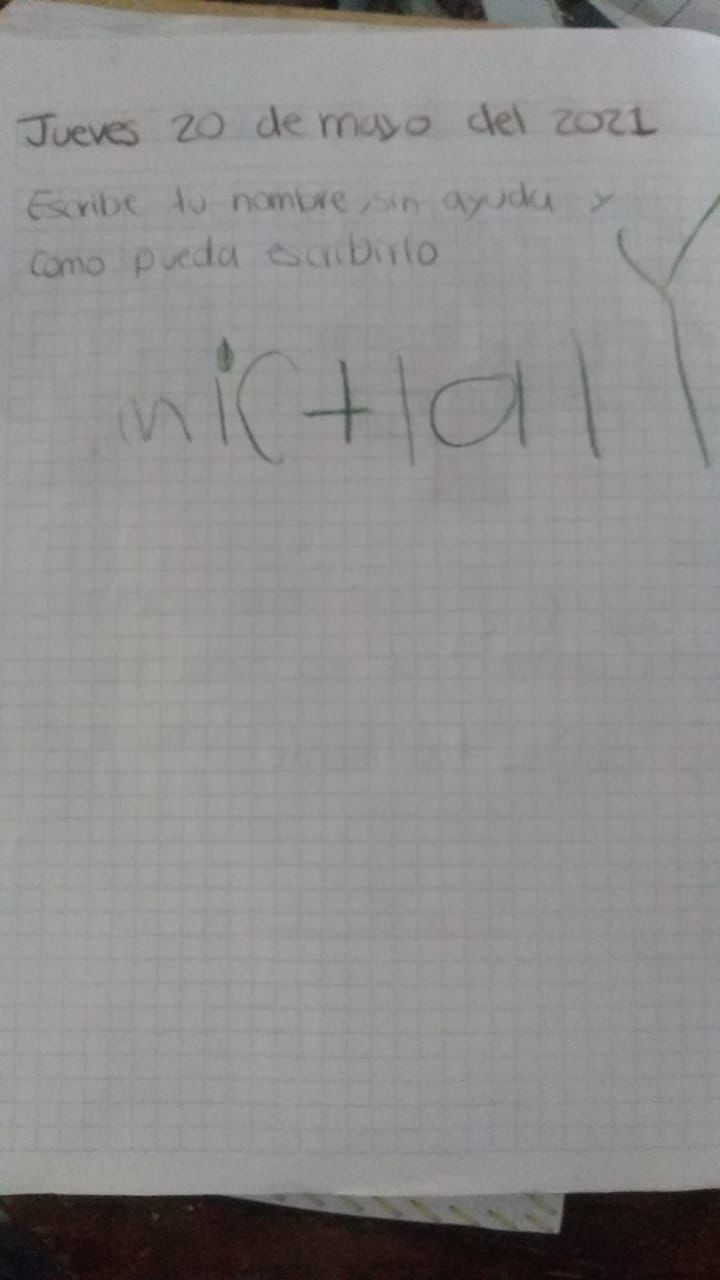 Jueves 20 de mayo del 2021
Escribe tu nombre, sin ayuda y
como pueda escribirlo
mictlaly